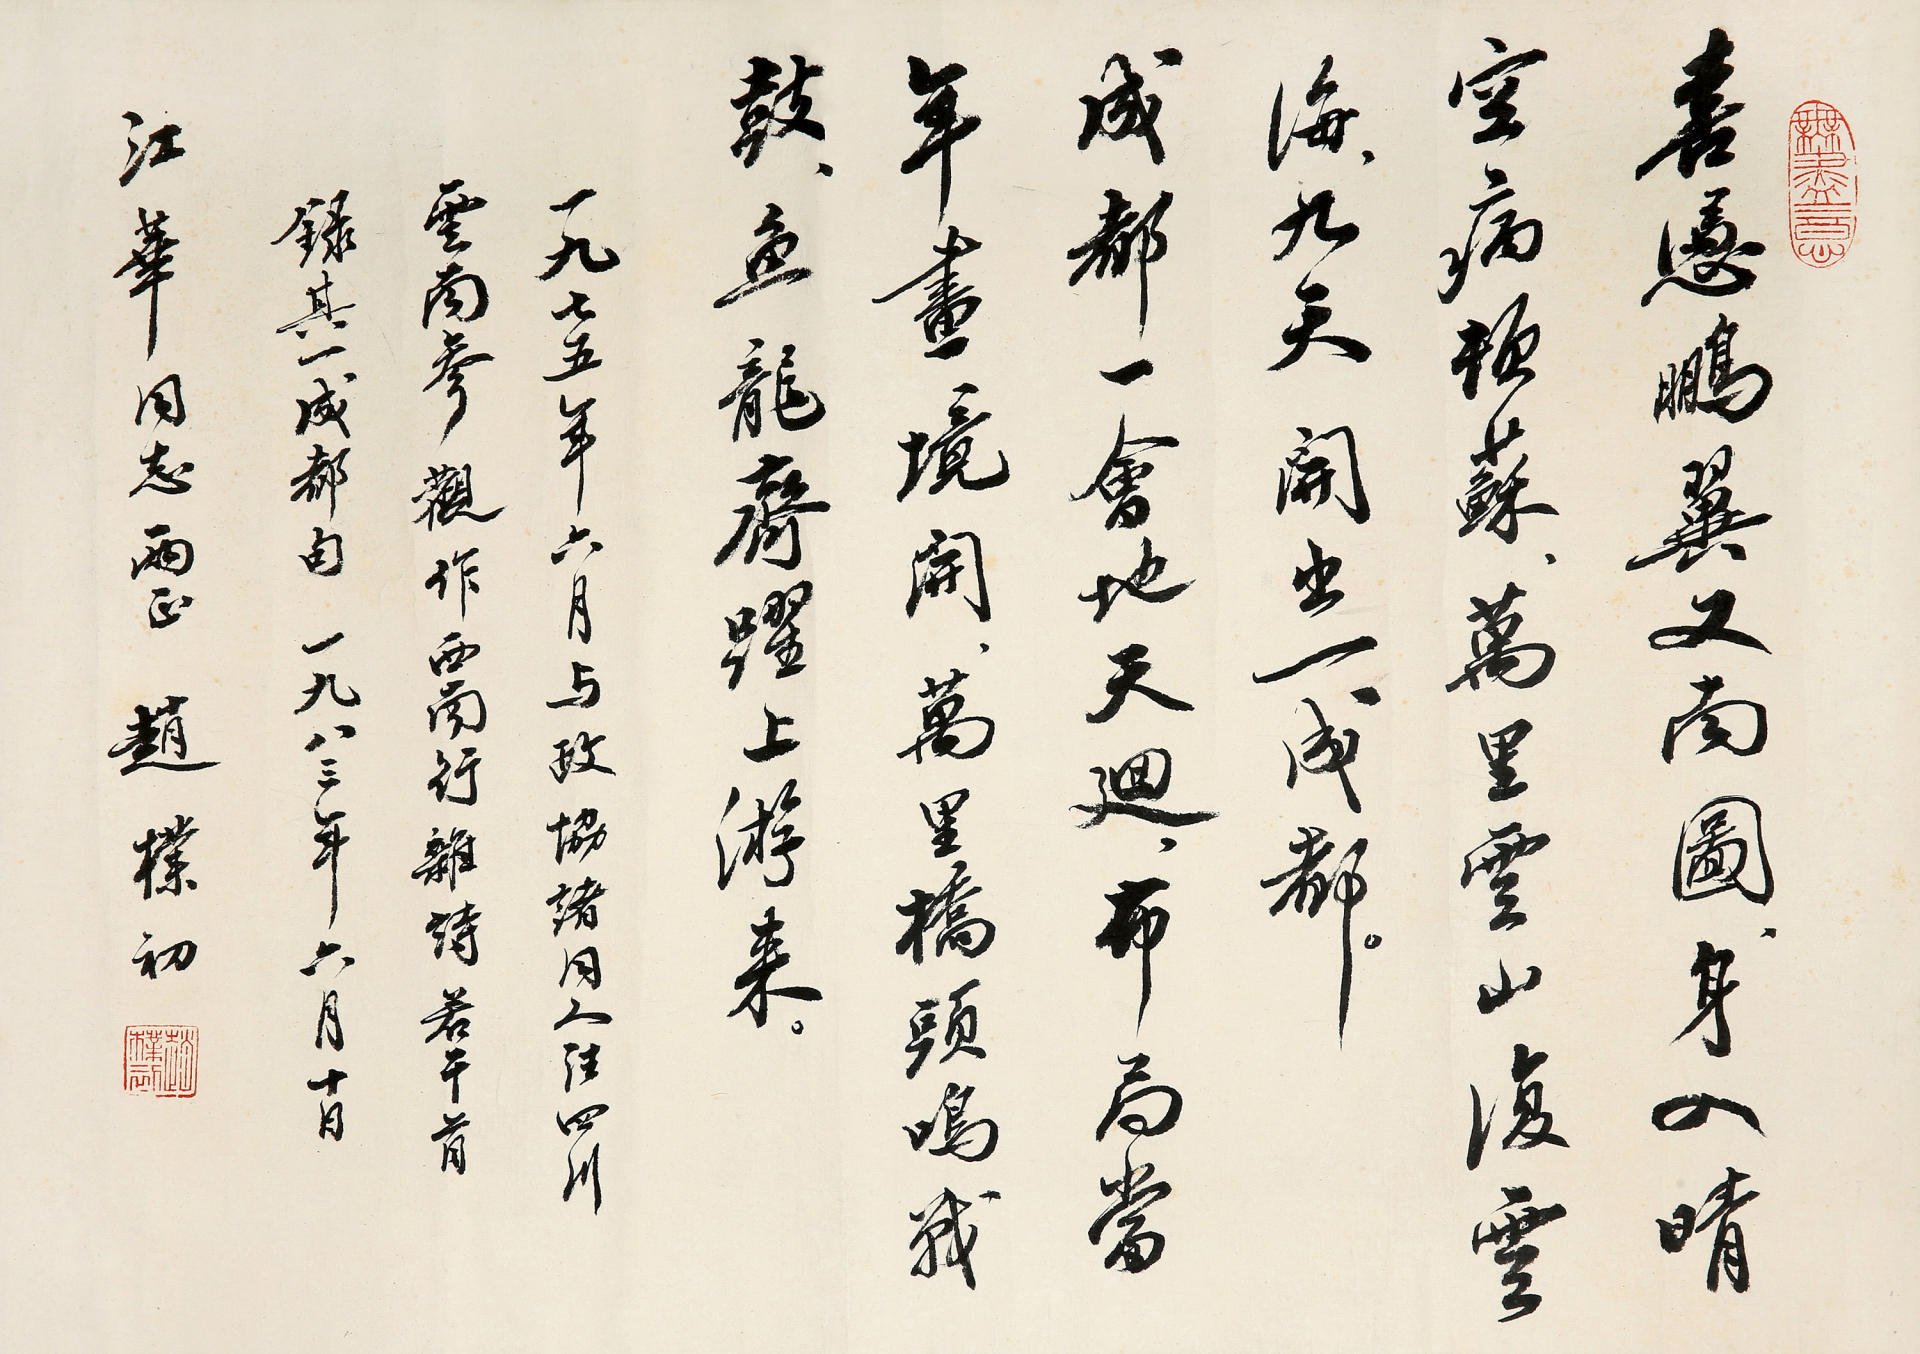 無盡意
喜憑鵬翼又南圖、身入晴
空病頓蘇、萬里雲山復雲
海、九天開出一成都。
成都一會地天迴、布局當
年畫境開、萬里橋頭鳴戰
鼓、魚龍齊躍上游来。
一九七五年六月与政協諸同人往四川
雲南參觀作西南行雜詩若干首
録其一成都句 一九八三年六月十日
江華同志兩正 趙樸初
趙樸初